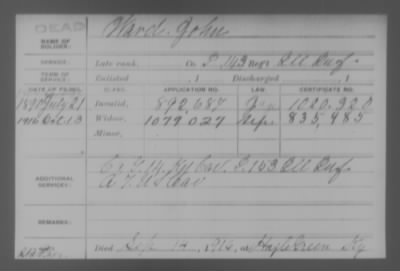 DEAD
Ward John
NAME OF SOLDIER:
SERVICE:
Late rank, Co. I 143 Reg't Ill Inf.
TERM OF SERVICE:
Enlisted , 1 Discharged , 1
DATE OF FILING. CLASS. APPLICATION NO. LAW. CERTIFICATE NO.
1890 July 21 Invalid, 892,687 1020,320
1916 Oct 13 Widow, 1079,027 835,985
Minor,
ADDITIONAL SERVICES:
Co. 14, Ky Cav. I, 153 Ill Inf
A. 7, US Cav
REMARKS:
Died Sep. 14, 1916, at Hazle Green Ky